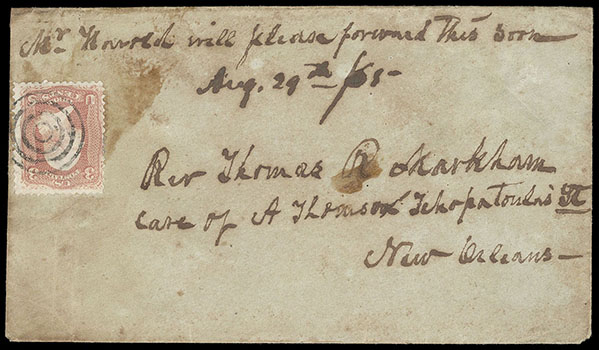 Mr. Howard will please forward this soon
Aug. 29th /65
Rev Thomas R Markham
care of A Thomson Tchopatoulas St
New Orleans